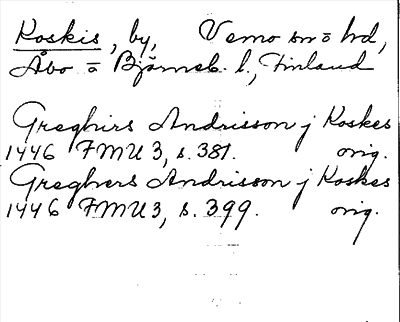 Koskis, by, Vemo sn o hrd,
Åbo o Björneb. l., Finland
Greghirs Andrisson j Koskes
1446 FMU 3, s. 381. orig.
Greghers Andrisson j Koskes
1446 FMU 3, s. 399. orig.